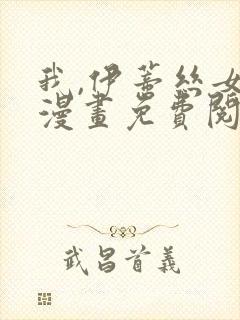 我,伊蒂絲女
漫畫免費閱
武昌首義